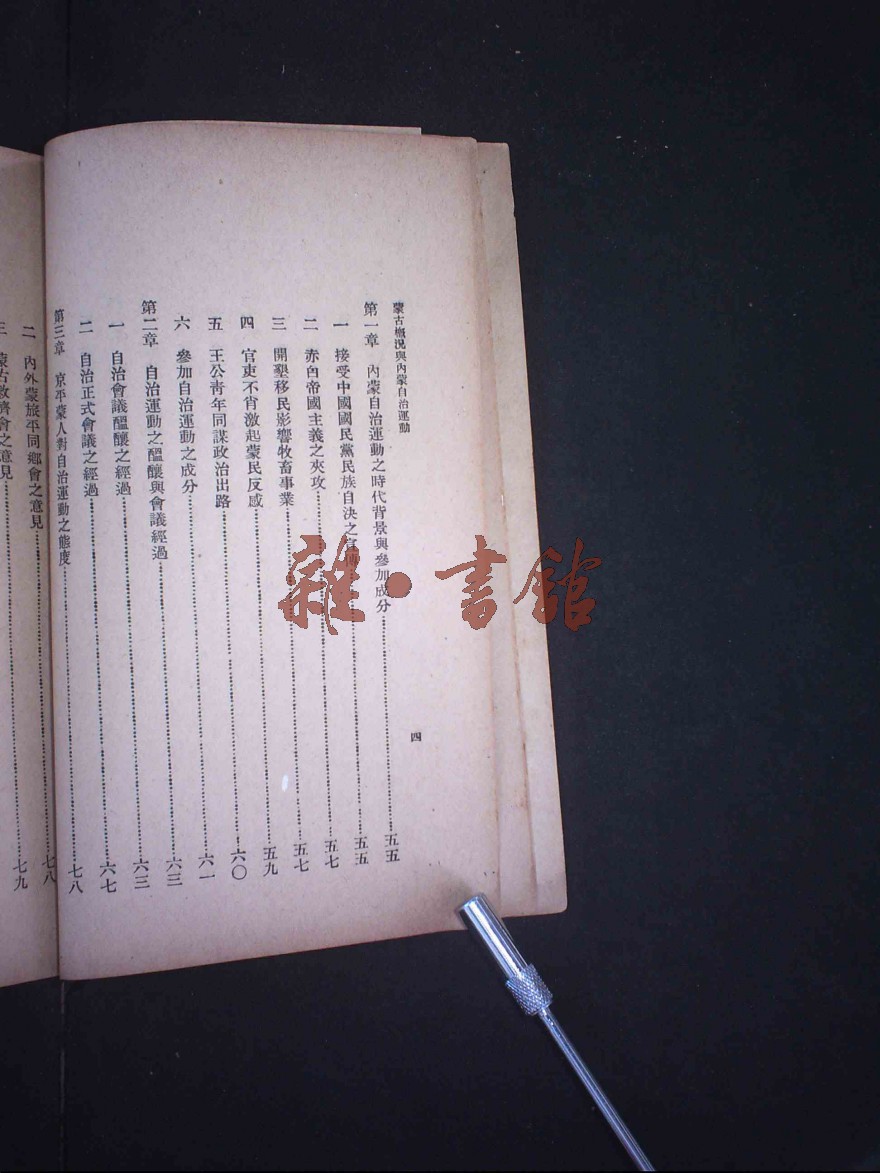 蒙古概況與內蒙自治運動
四
第一章 內蒙自治運動之時代背景與參加成分 五五
一 接受中國國民黨民族自決之宣傳 五五
二 赤白帝國主義之夾攻 五七
三 開墾移民影響牧畜事業 五七
四 官吏不肖激起蒙民反感 五九
五 王公青年同謀政治出路 六〇
六 參加自治運動之成分 六一
第二章 自治運動之醞釀與會議經過 六三
一 自治會議醞釀之經過 六三
二 自治正式會議之經過 六七
第三章 京平蒙人對自治運動之態度 七八
二 內外蒙旅平同鄉會之意見 七八
三 蒙古救濟會之意見 七九
雜·書館